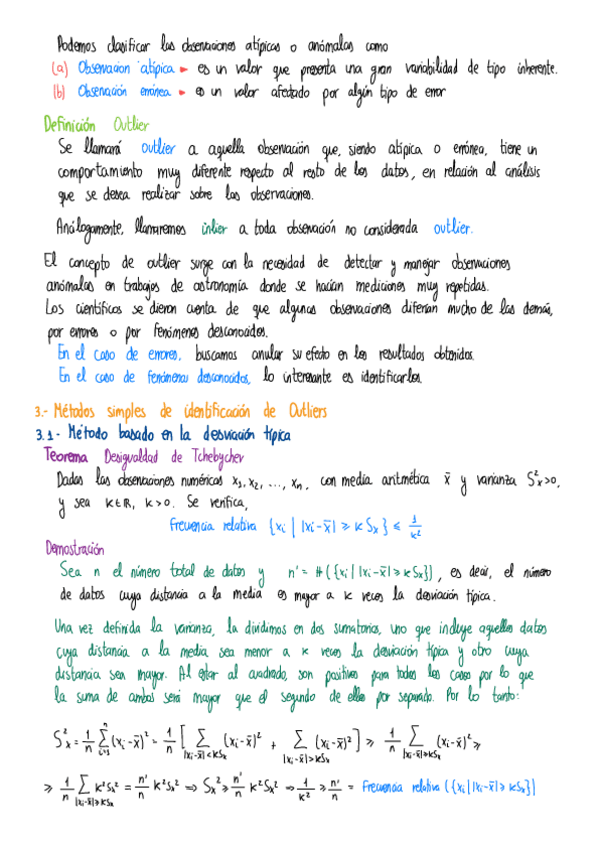 Podemos clasificar las observaciones atípicas o anómalas como
(a) Observacion atípica → es un valor que presenta una gran variabilidad de tipo inherente.
(b) Observación errónea → es un valor afectado por algún tipo de error
Definición Outlier
Se llamará outlier a aquella observación que, siendo atípica o errónea, tiene un
comportamiento muy diferente respecto al resto de los datos, en relación al análisis
que se desea realizar sobre las observaciones.
Análogamente, llamaremos inlier a toda observación no considerada outlier.
El concepto de outlier surge con la necesidad de detectar y manejar observaciones
anómalas en trabajos de astronomía donde se hacían mediciones muy repetidas.
Los científicos se dieron cuenta de que algunas observaciones diferían mucho de las demás,
por errores o por fenómenos desconocidos.
En el caso de errores, buscamos anular su efecto en los resultados obtenidos.
En el caso de fenómenos desconocidos, lo interesante es identificarlos.
3.- Métodos simples de identificación de Outliers
3.1- Método basado en la desviación típica
Teorema Desigualdad de Tchebychev
Dadas las observaciones numéricas x₁, x₂, ..., xₙ, con media aritmética x̄ y varianza S²ₓ>0,
y sea k∈ℝ, k>0. Se verifica,
Frecuencia relativa {xᵢ | |xᵢ-x̄| ≥ k Sₓ} ≤ 1/k²
Demostración
Sea n el número total de datos y n' = #({xᵢ | |xᵢ-x̄| ≥ k Sₓ}), es decir, el número
de datos cuya distancia a la media es mayor a k veces la desviación típica.
Una vez definida la varianza, la dividimos en dos sumatorios, uno que incluye aquellos datos
cuya distancia a la media sea menor a k veces la desviación típica y otro cuya
distancia sea mayor. Al estar al cuadrado, son positivos para todos los casos por lo que
la suma de ambos será mayor que el segundo de ellos por separado. Por lo tanto:
S²ₓ = 1/n Σⁿᵢ₌₁ (xᵢ-x̄)² = 1/n [ Σ_{|xᵢ-x̄|<kSₓ} (xᵢ-x̄)² + Σ_{|xᵢ-x̄|>kSₓ} (xᵢ-x̄)² ] ≥ 1/n Σ_{|xᵢ-x̄|≥kSₓ} (xᵢ-x̄)² ≥
≥ 1/n Σ_{|xᵢ-x̄|≥kSₓ} k²Sₓ² = n'/n k²Sₓ² ⇒ Sₓ² ≥ n'/n k²Sₓ² ⇒ 1/k² ≥ n'/n = Frecuencia relativa ({xᵢ | |xᵢ-x̄| ≥ kSₓ})